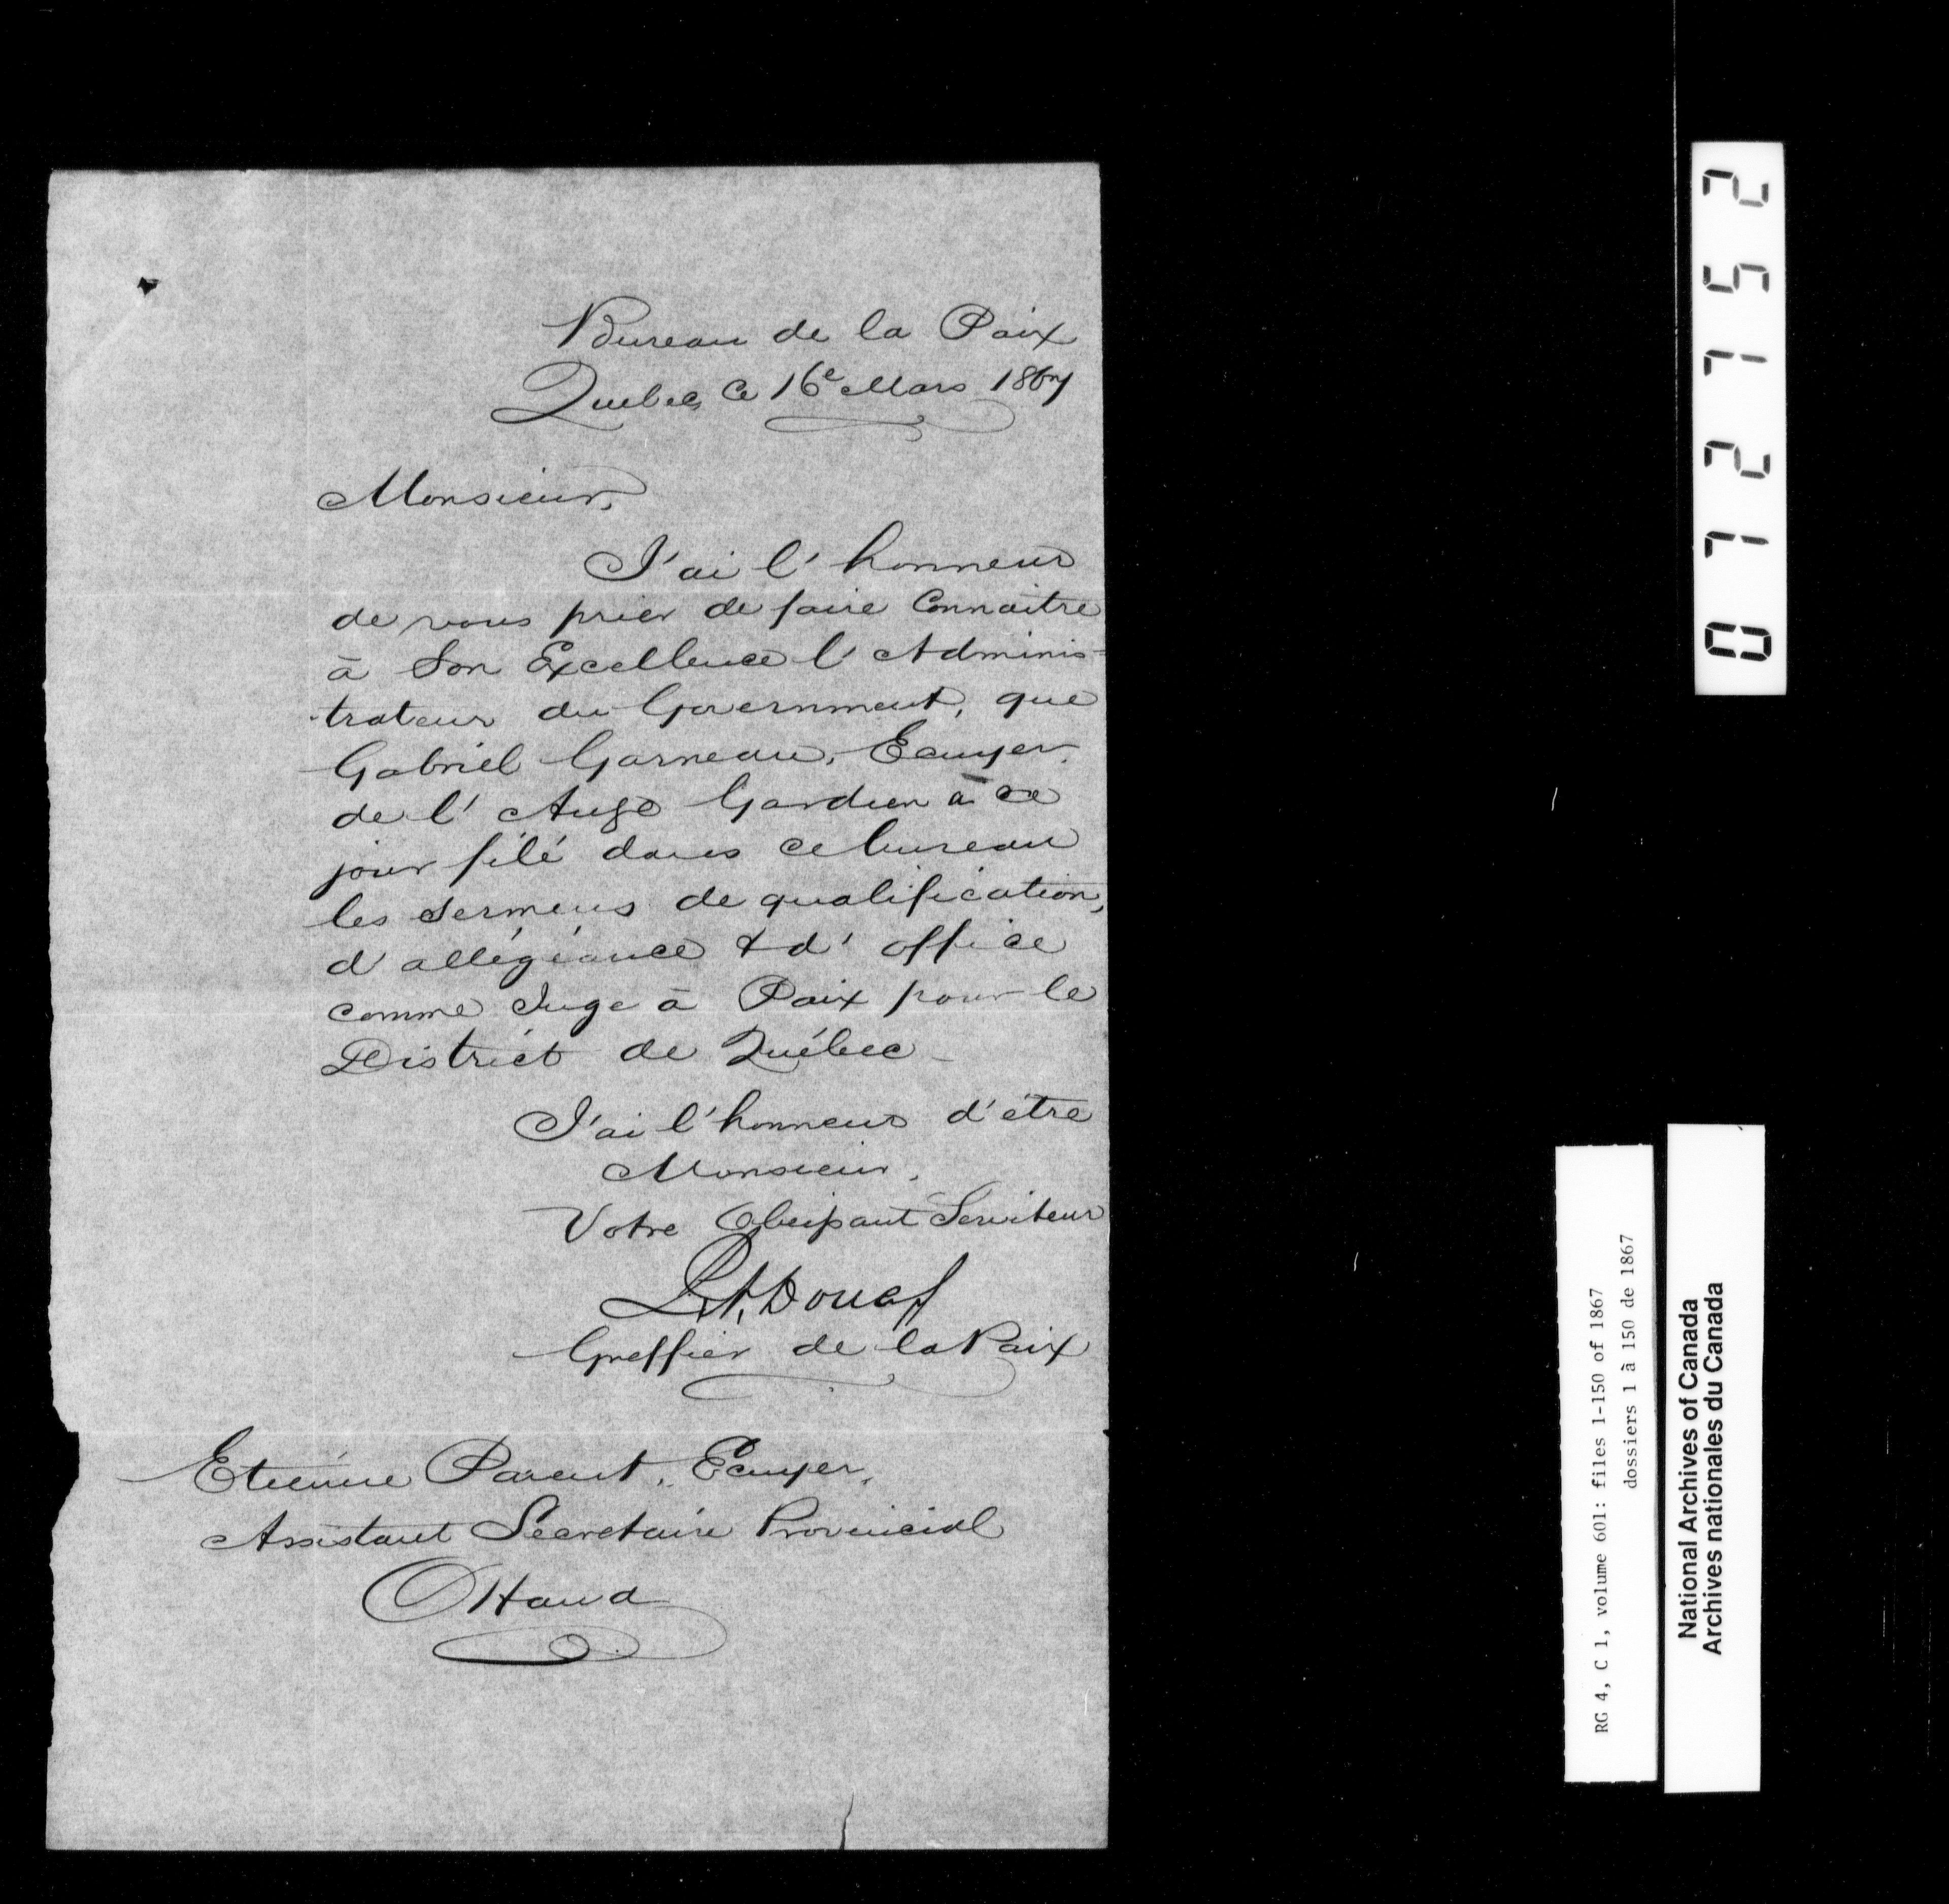 Bureau de la Paix
Quebec, Ce 16e Mars 1867
Monsieur,
J'ai l'honneur
de vous prier de faire Connaître
à Son Excellence l'Adminis-
trateur du Government, que
Gabriel Garneau, Ecuyer,
de l'Ange Gardien à ce
jour filé dans ce bureau
les Sermens de qualification,
d'allégéance & d'office
comme Juge à Paix pour le
District de Québec -
J'ai l'honneur d'être
Monsieur,
Votre Obeissant Serviteur
Greffier de la Paix
Etienne Parent, Ecuyer,
Assistant Secretaire Provincial
Ottawa
072752
RG 4, C 1, volume 601: files 1-150 of 1867
dossiers 1 à 150 de 1867
National Archives of Canada
Archives nationales du Canada